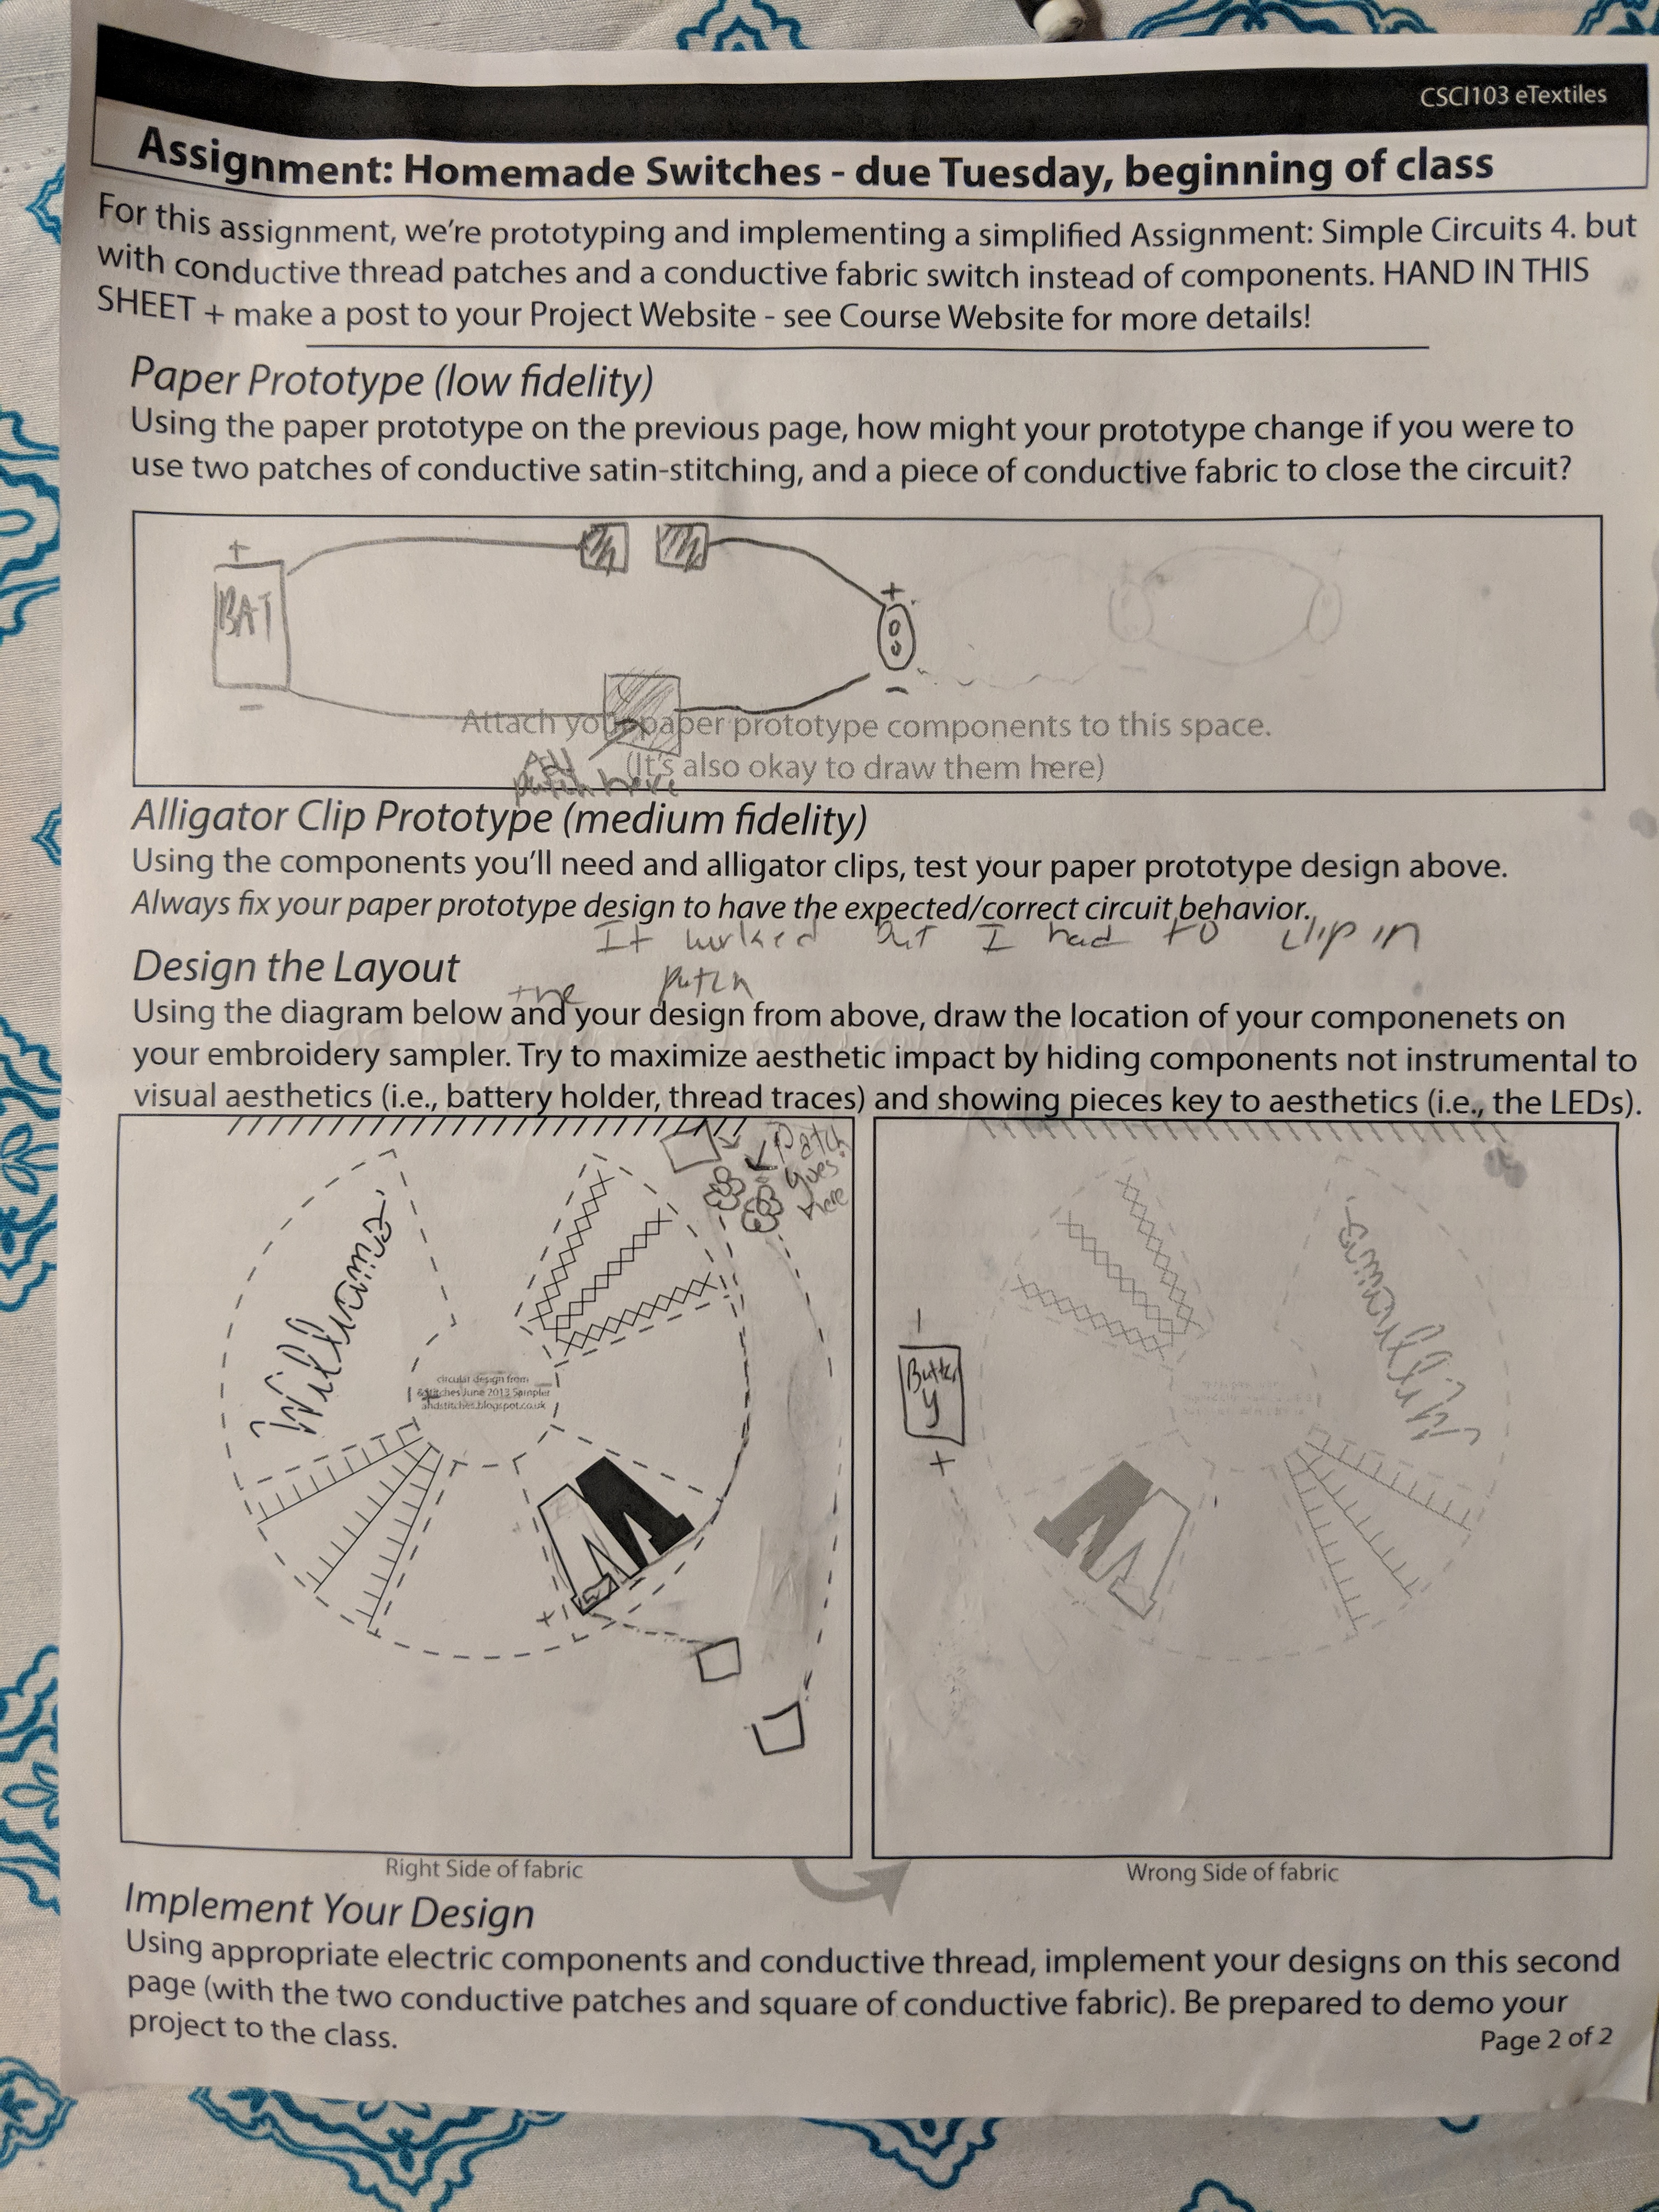 CSCI103 eTextiles
Assignment: Homemade Switches - due Tuesday, beginning of class
For this assignment, we're prototyping and implementing a simplified Assignment: Simple Circuits 4. but
with conductive thread patches and a conductive fabric switch instead of components. HAND IN THIS
SHEET + make a post to your Project Website - see Course Website for more details!
Paper Prototype (low fidelity)
Using the paper prototype on the previous page, how might your prototype change if you were to
use two patches of conductive satin-stitching, and a piece of conductive fabric to close the circuit?
+
BAT
-
+
-
Attach your paper prototype components to this space.
(It's also okay to draw them here)
patch here
Alligator Clip Prototype (medium fidelity)
Using the components you'll need and alligator clips, test your paper prototype design above.
Always fix your paper prototype design to have the expected/correct circuit behavior.
It worked but I had to clip in
the patch
Design the Layout
Using the diagram below and your design from above, draw the location of your componenets on
your embroidery sampler. Try to maximize aesthetic impact by hiding components not instrumental to
visual aesthetics (i.e., battery holder, thread traces) and showing pieces key to aesthetics (i.e., the LEDs).
Patch
goes
here
Williams
circular design from
&Stitches June 2013 Sampler
andstitches.blogspot.co.uk
W
+
Williams
-
Batter
y
+
W
Right Side of fabric
Wrong Side of fabric
Implement Your Design
Using appropriate electric components and conductive thread, implement your designs on this second
page (with the two conductive patches and square of conductive fabric). Be prepared to demo your
project to the class.
Page 2 of 2